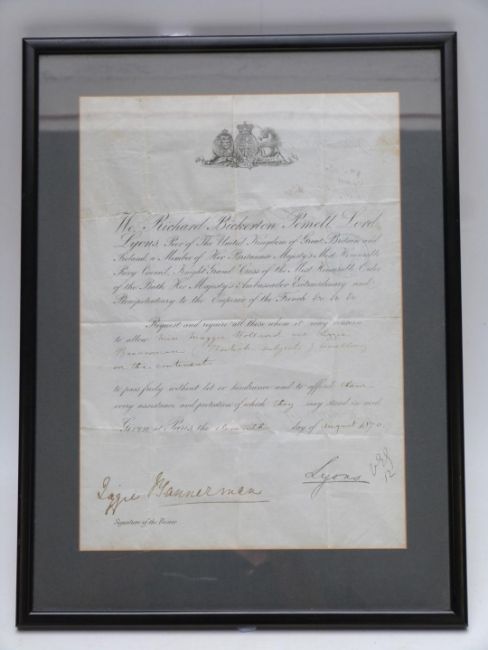 We, Richard Bickerton Pemell Lord
Lyons, Peer of The United Kingdom of Great Britain and
Ireland, a Member of Her Britannic Majesty's Most Honorable
Privy Council, Knight Grand Cross of the Most Honorable Order
of the Bath, Her Majesty's Ambassador Extraordinary and
Plenipotentiary to the Emperor of the French &c &c &c
Request and require all those whom it may concern
to allow Miss Maggie Holland and Lizzie
Bannerman (British subjects) travelling
on the continent
to pass freely without let or hindrance and to afford them
every assistance and protection of which they may stand in need
Given at Paris, the day of August 1870.
Lyons
Lizzie Bannerman
Signature of the Bearer